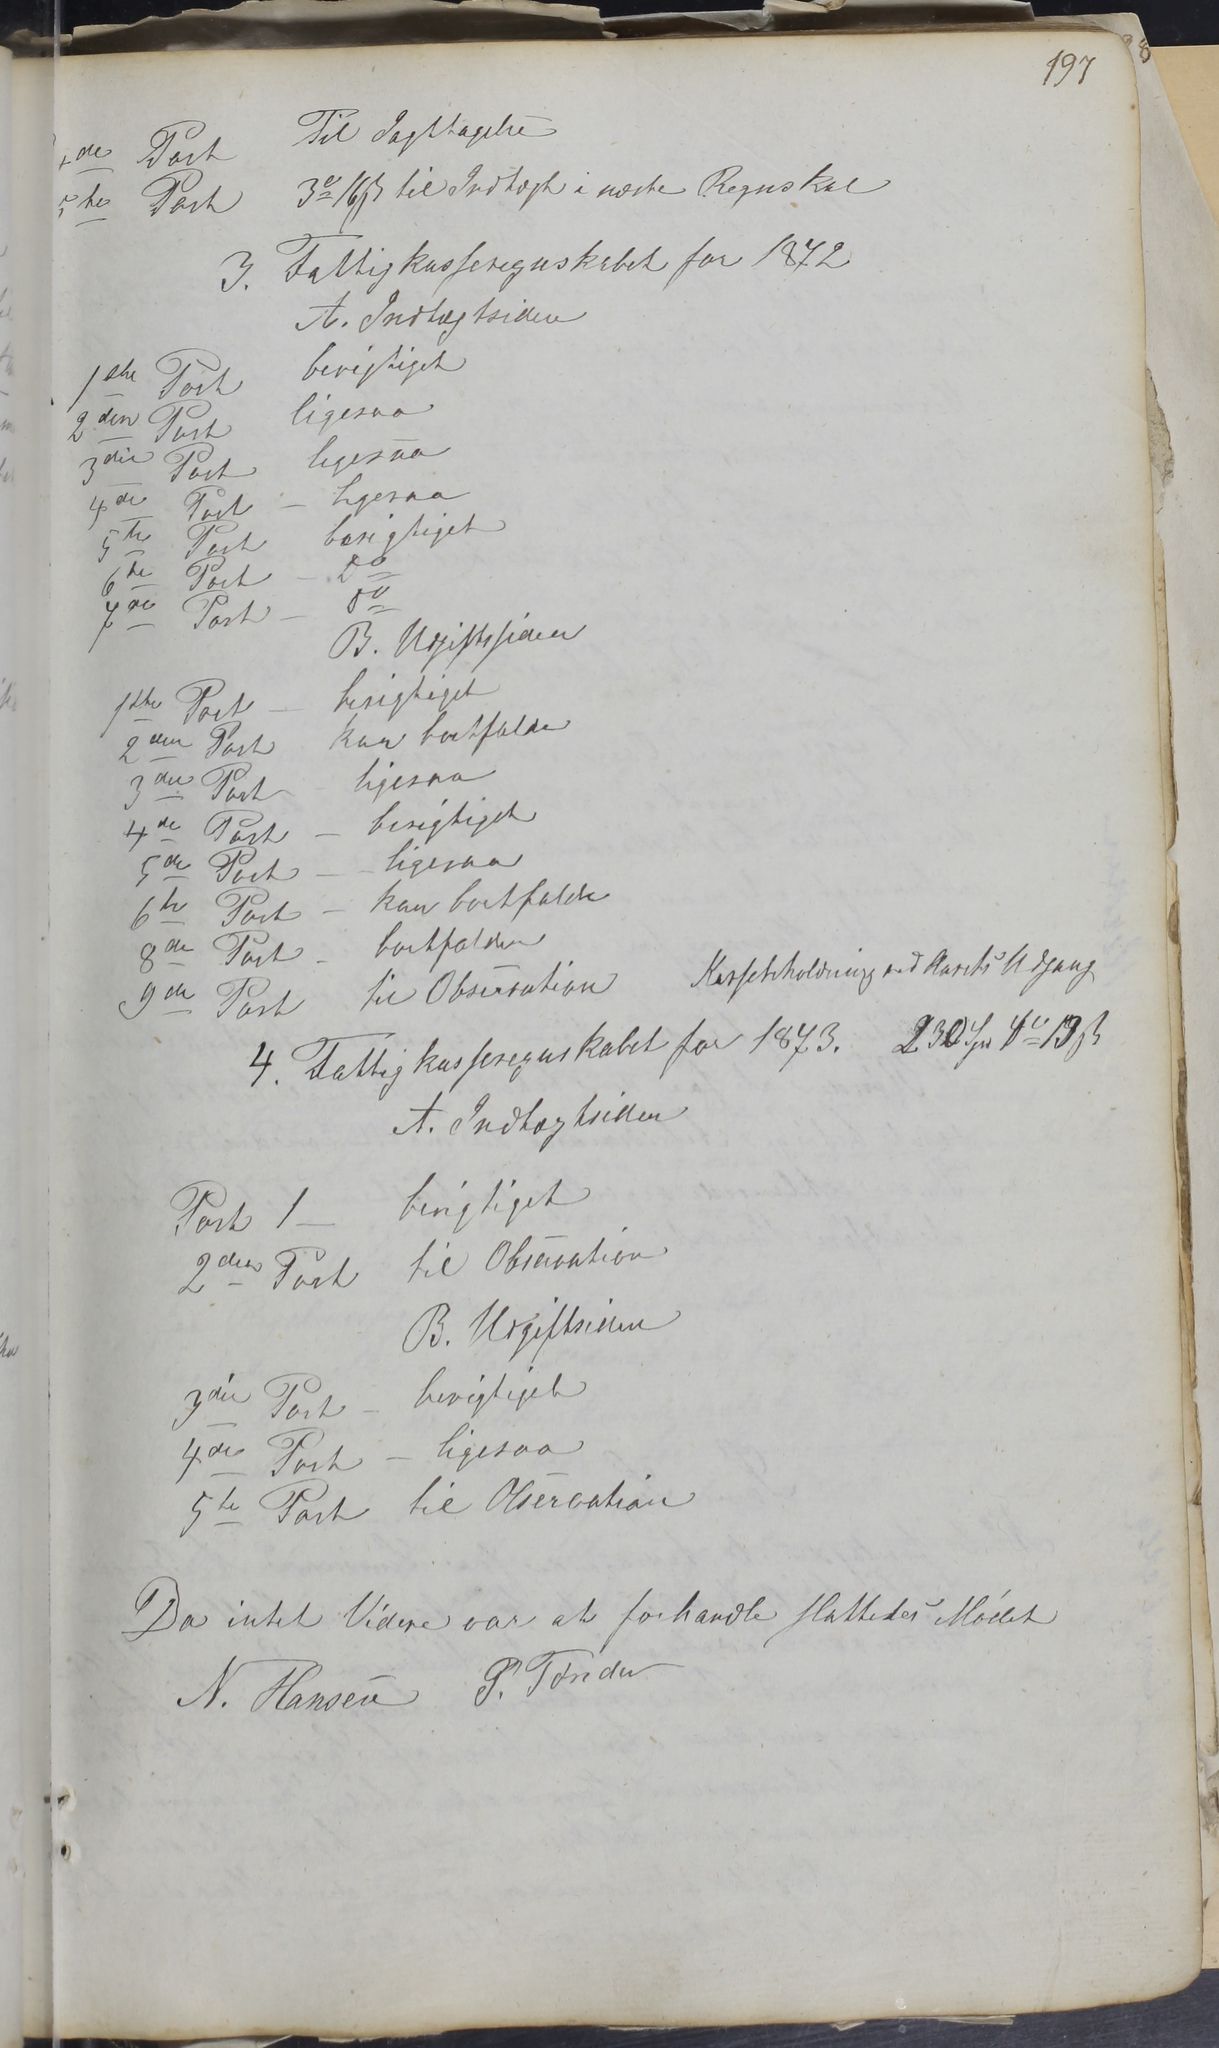 197
4de Post Til Iagttagelse
5te Post 3 16 β til Indtægt i næste Regnskab
3. Fattigkasseregnskabet for 1872
A. Indtægtsiden
1ste Post berigtiget
2den Post ligesaa
3die Post ligesaa
4de Post – ligesaa
5te Post berigtiget
6te Post – Do
7de Post – do
B. Udgiftssiden
1ste Post – berigtiget
2den Post kan bortfalde
3die Post – ligesaa
4de Post – berigtiget
5de Post – ligesaa
6te Post – kan bortfalde
8de Post – bortfalder
9de Post til Observation Kassebeholdning ved Aarets Udgang
4. Fattigkasseregnskabet for 1873. 230 Spd 13 β
A. Indtægtsiden
Post 1 – berigtiget
2den Post til Observation
B. Udgiftsiden
3die Post – berigtiget
4de Post – ligesaa
5te Post til Observation
Da intet Videre var at forhandle sluttedes Mödet
N. Hansen P. Tönder